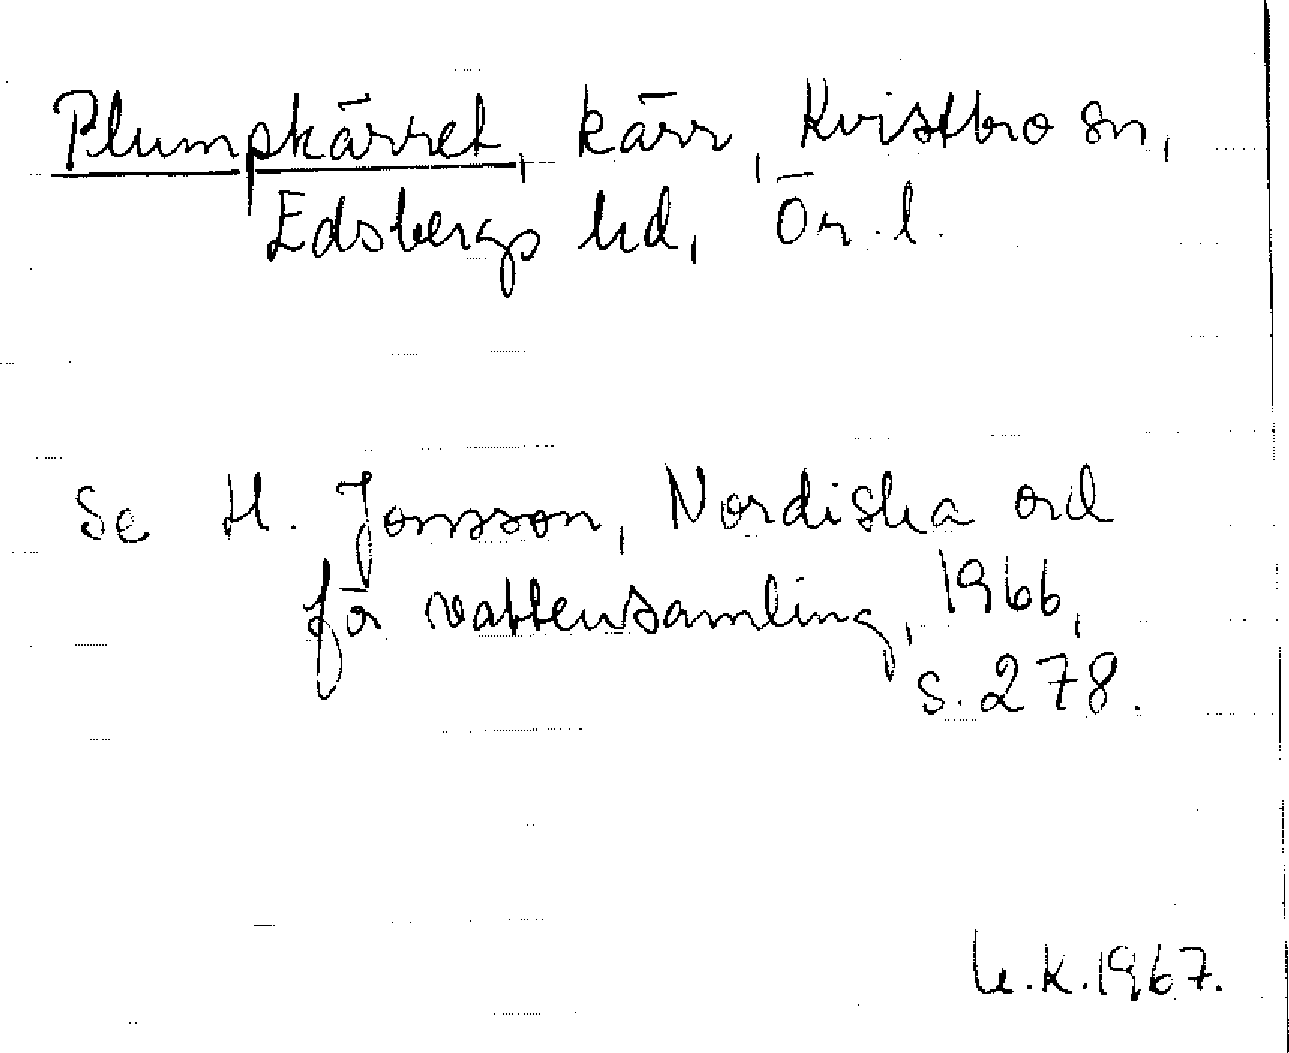 Plumpkärret, kärr, Kvistbro sn,
Edsbergs hd, Ör. l.
Se H. Jonsson, Nordiska ord
för vattensamling, 1966,
s. 278.
k.1967.